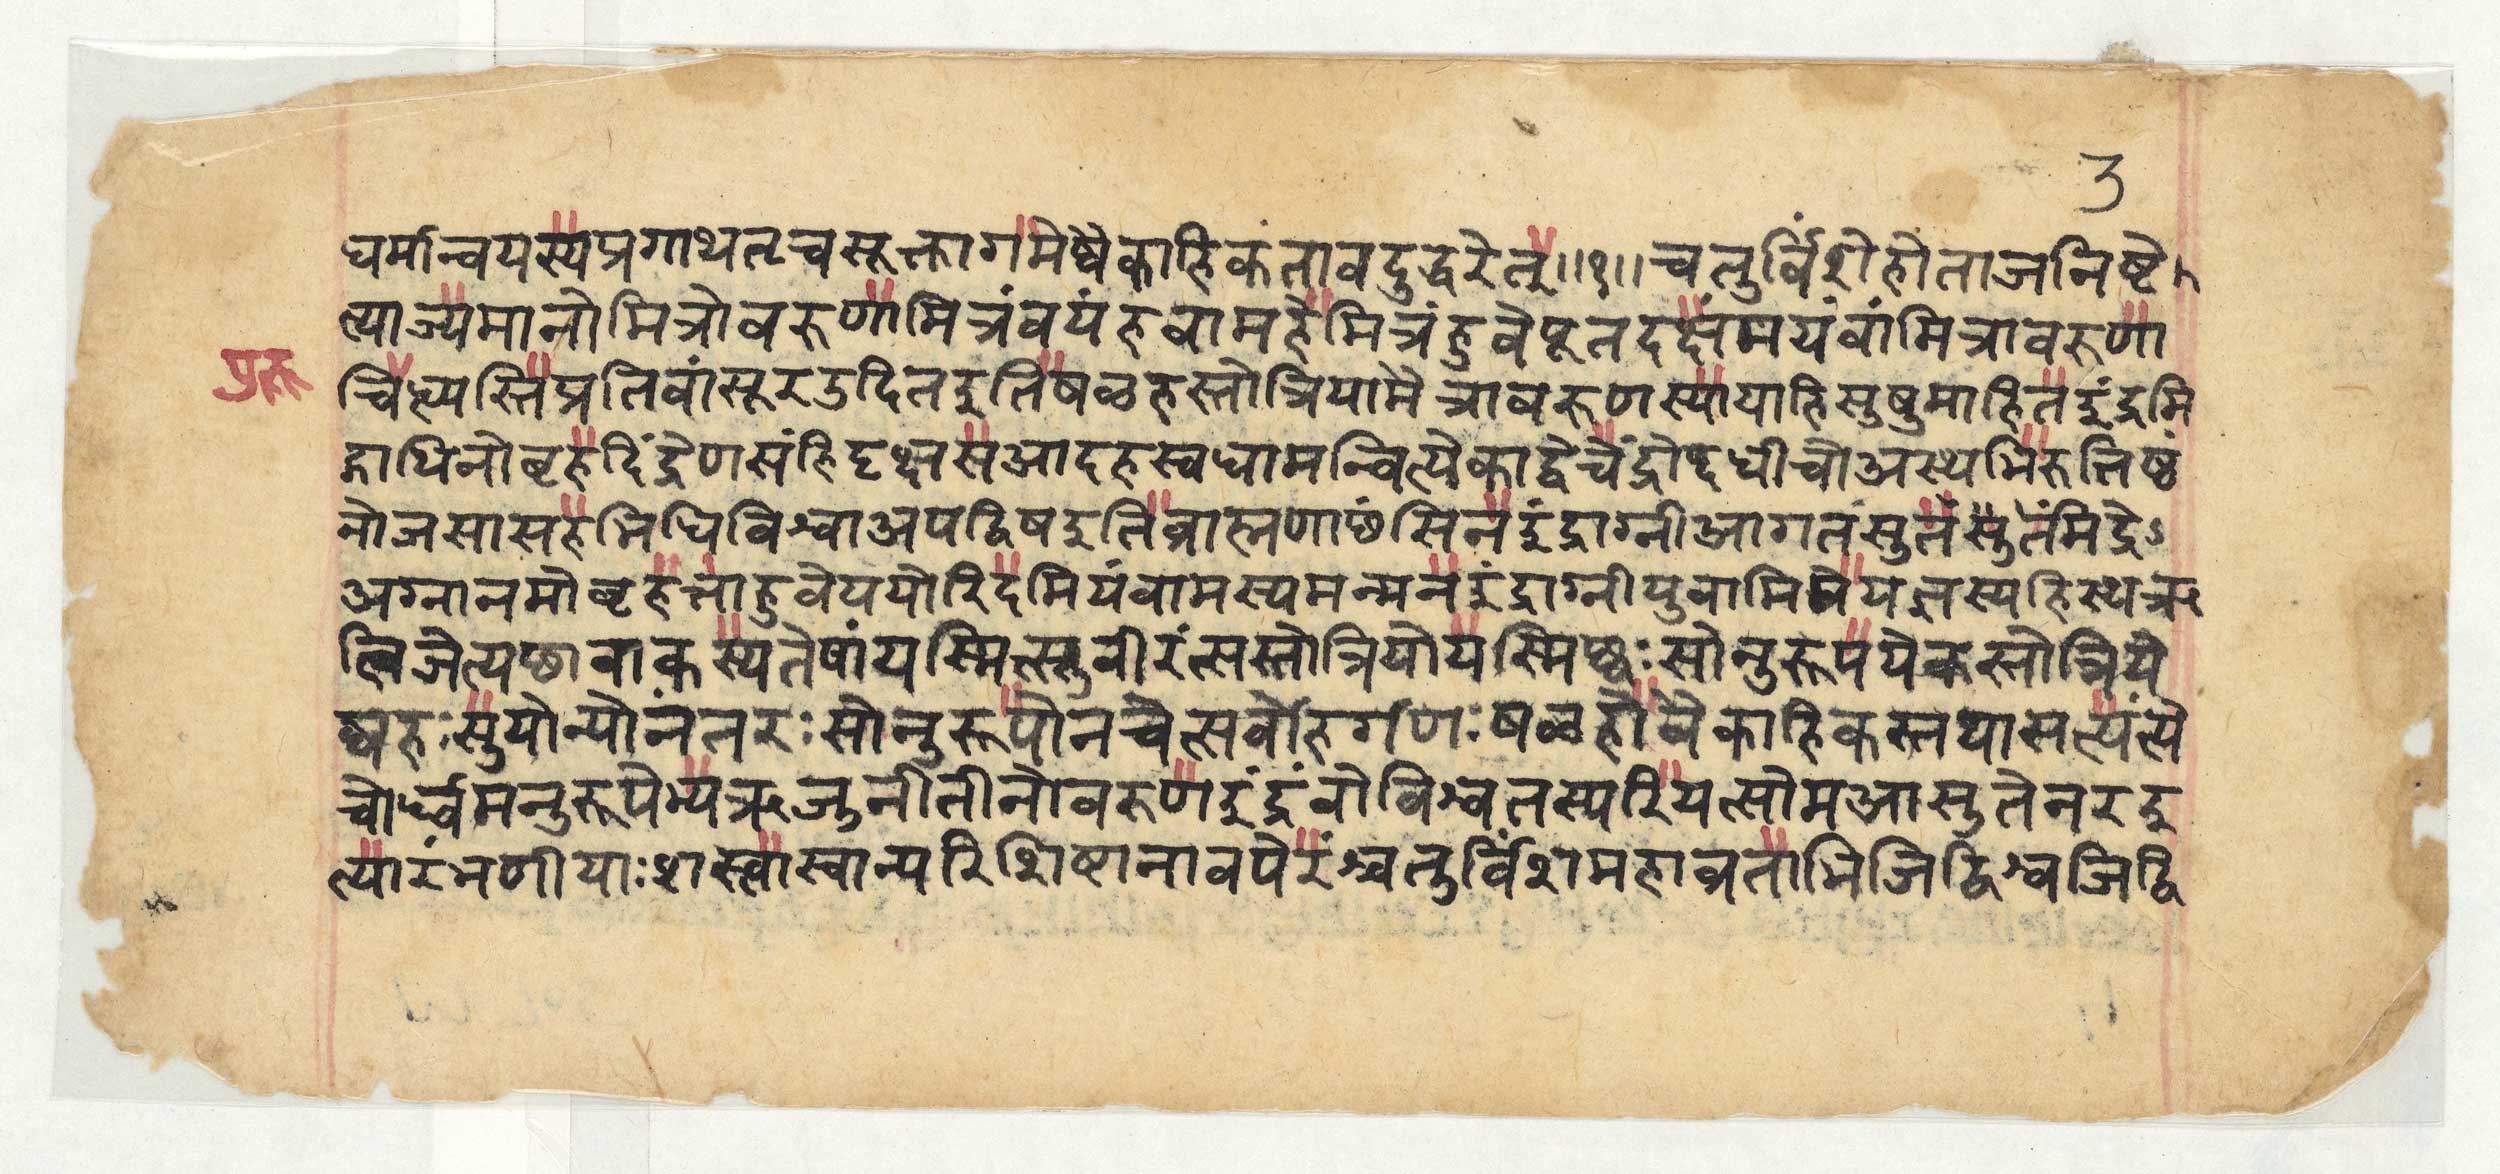 3
घर्मान्वयस्यप्रगाथतृचसूक्तागमेष्वैकाहिकंतावदुद्धरेत्॥१॥चतुर्विंशेहोताजनिष्टे
त्याज्यमानोमित्रोवरुणामित्रंवयंहवामहेमित्रंहुवेपूतदक्षंमयंवांमित्रावरुणा
प्ररु
चिद्ध्यस्तिप्रतिवांसूरउदितइतिषळहस्तोत्रियामैत्रावरुणस्यायाहिसुषुमाहितइंद्रमि
द्गाथिनोबृहदिंद्रेणसंहिदृक्षसआदहस्वधामन्वित्येकाद्वेचेंद्रोदधीचोअस्थभिरुत्तिष्ठं
नोजसासहभिंधिविश्वाअपद्विषइतिब्राह्मणाछंसिनइंद्राग्नीआगतंसुतंसुतमिंद्रेऽ
अग्नानमोबृहत्ताहुवेययोरिदमियंवामस्यमन्मनइंद्राग्नीयुवामिमेयज्ञस्यहिस्थऋ
त्विजेत्यछावाकस्यतेषांयस्मिंत्स्तुवीरंत्सस्तोत्रियोयस्मिंछ्वः सोनुरूपयेकस्तोत्रिये
ष्वहः सुयोन्योनंतरः सोनुरूपोनचेत्सर्वोहर्गणः षळहोवैकाहिकस्तथासत्यंत्ये
चोर्ध्वमनुरूपेभ्यऋजुनीतीनोवरुणइंद्रंवोविश्वतस्परियत्सोमआसुतेनरइ
त्यारंभणीयाः शस्त्वास्वान्परिशिष्टानावपेरंश्चतुर्विंशमहाव्रताभिजिद्विश्वजिद्वि